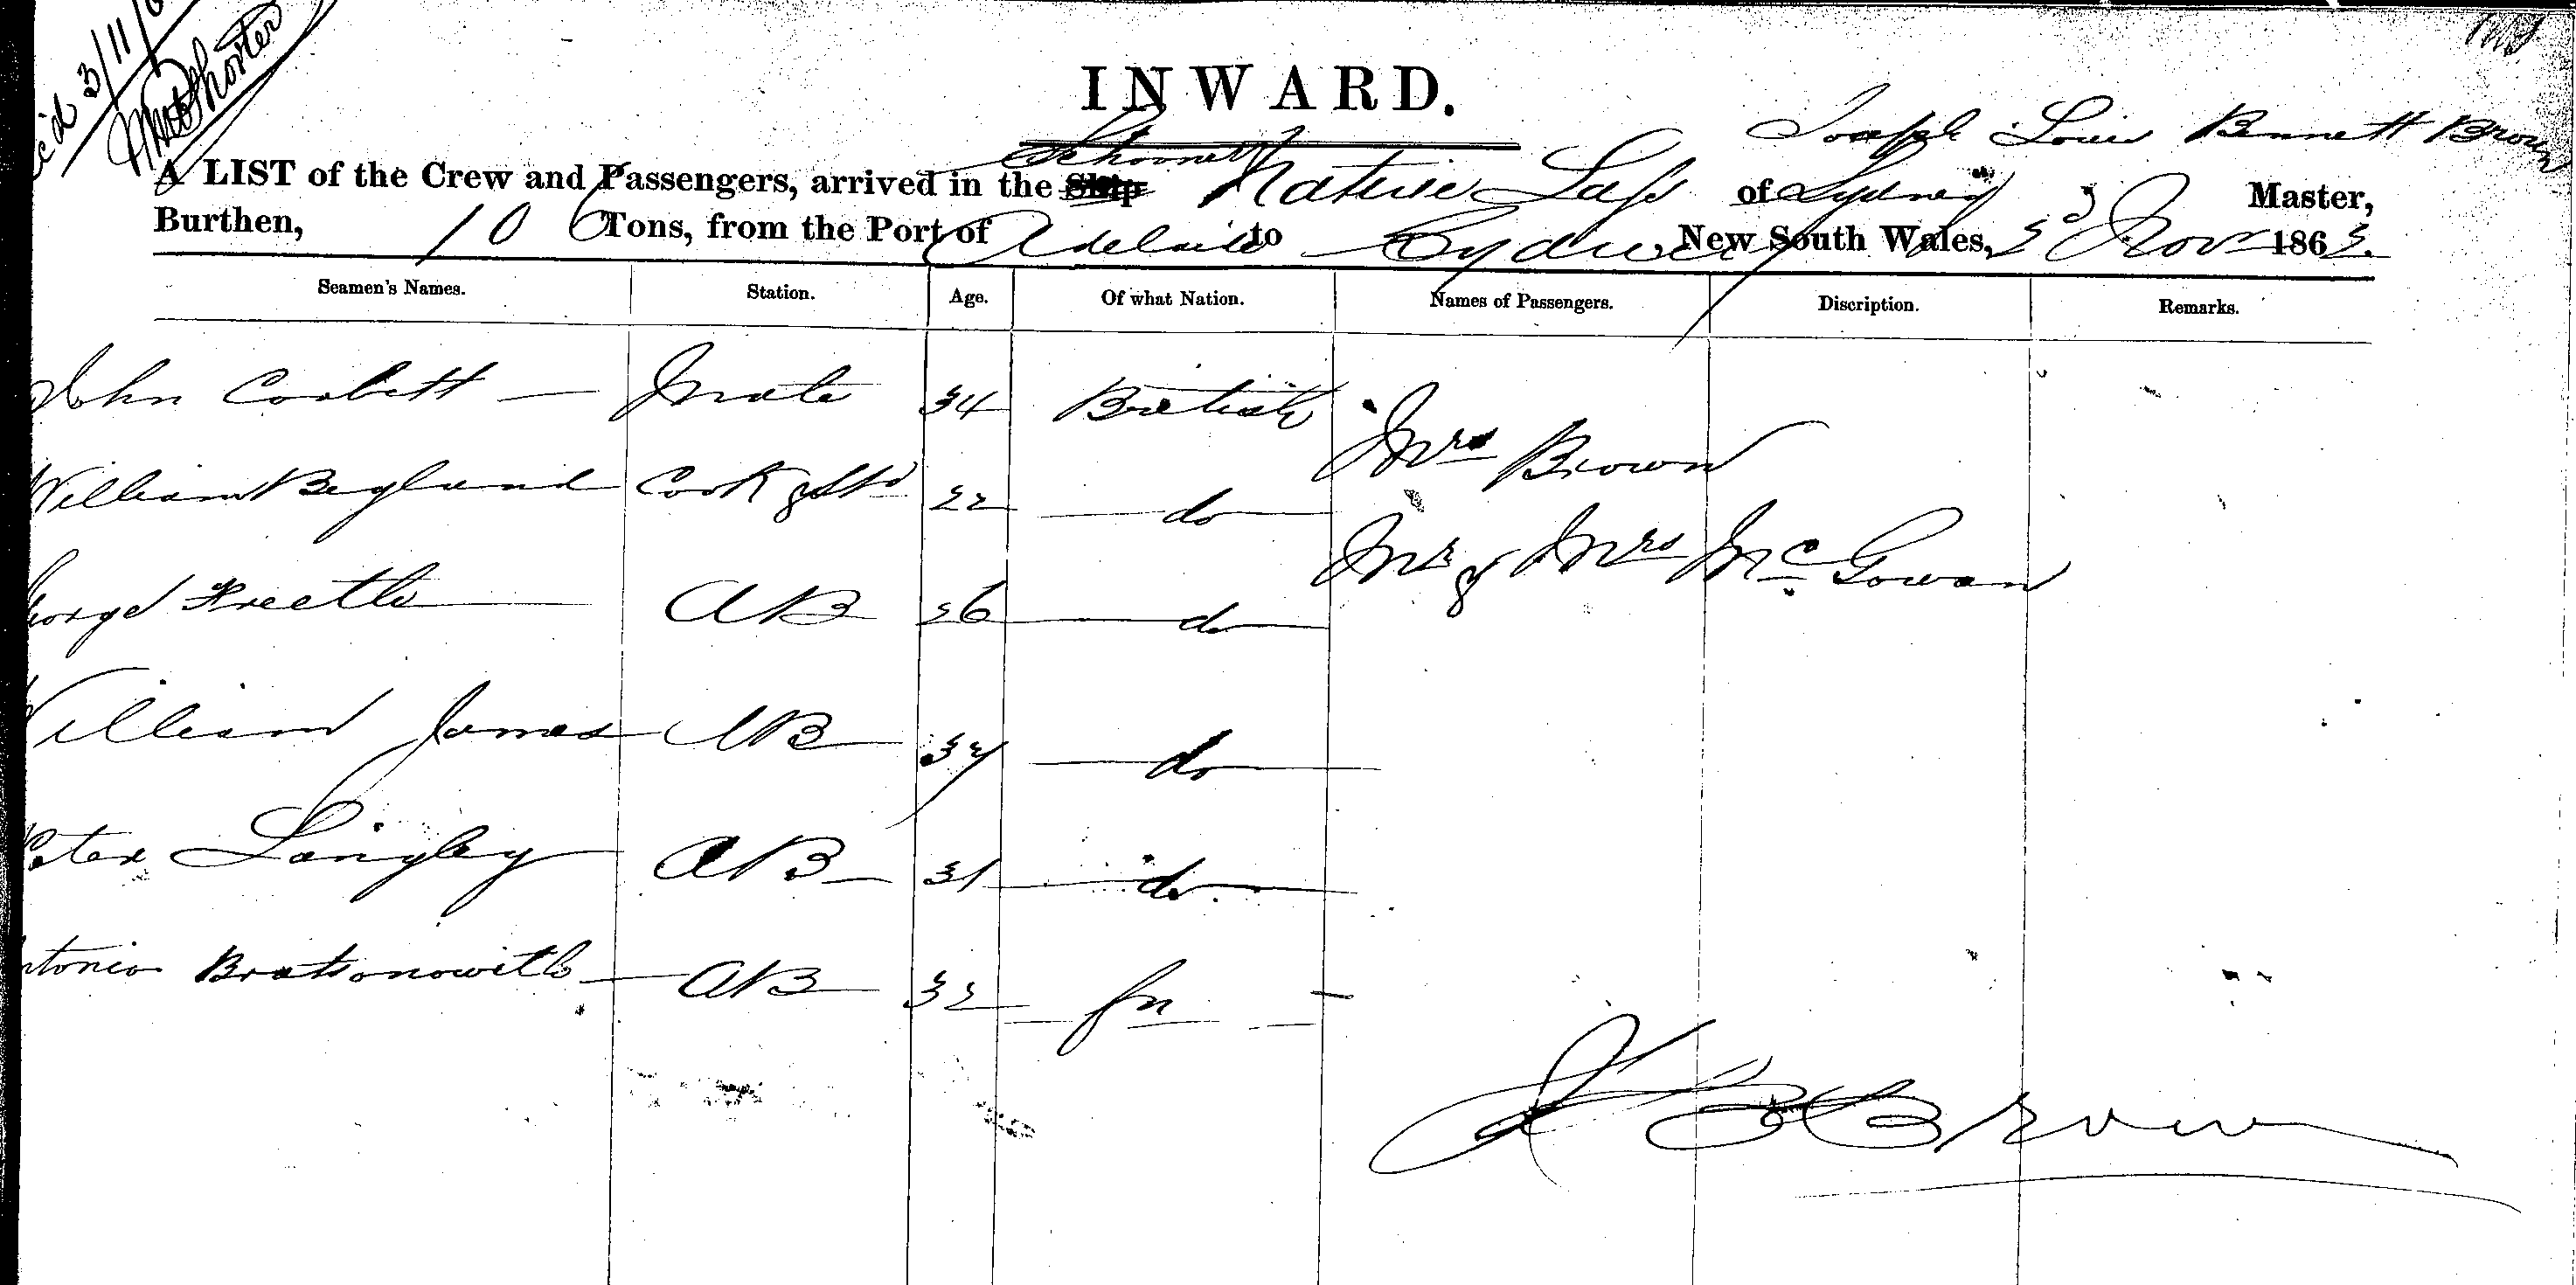 3/11/6
INWARD.
Joseph Louis Bennett Brown
Schooner
A LIST of the Crew and Passengers, arrived in the Ship Native Lass of Sydney Master,
Burthen, 106 Tons, from the Port of Adelaide to Sydney New South Wales, 3 Nov 1863.
Seamen's Names. Station. Age. Of what Nation. Names of Passengers. Discription. Remarks.
John Corbett Mate 34 British
Mrs Brown
William Begland Cook & Std 22 do
Mr & Mrs McGowan
George AB 26 do
William James AB 37 do
Peter Langley AB 31 do
AB 32 fn
Brown